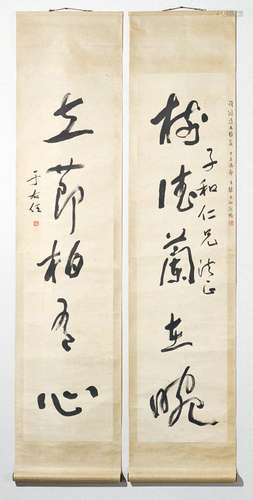 樹德蘭在畹
子和仁兄法正
立節柏有心
于右任